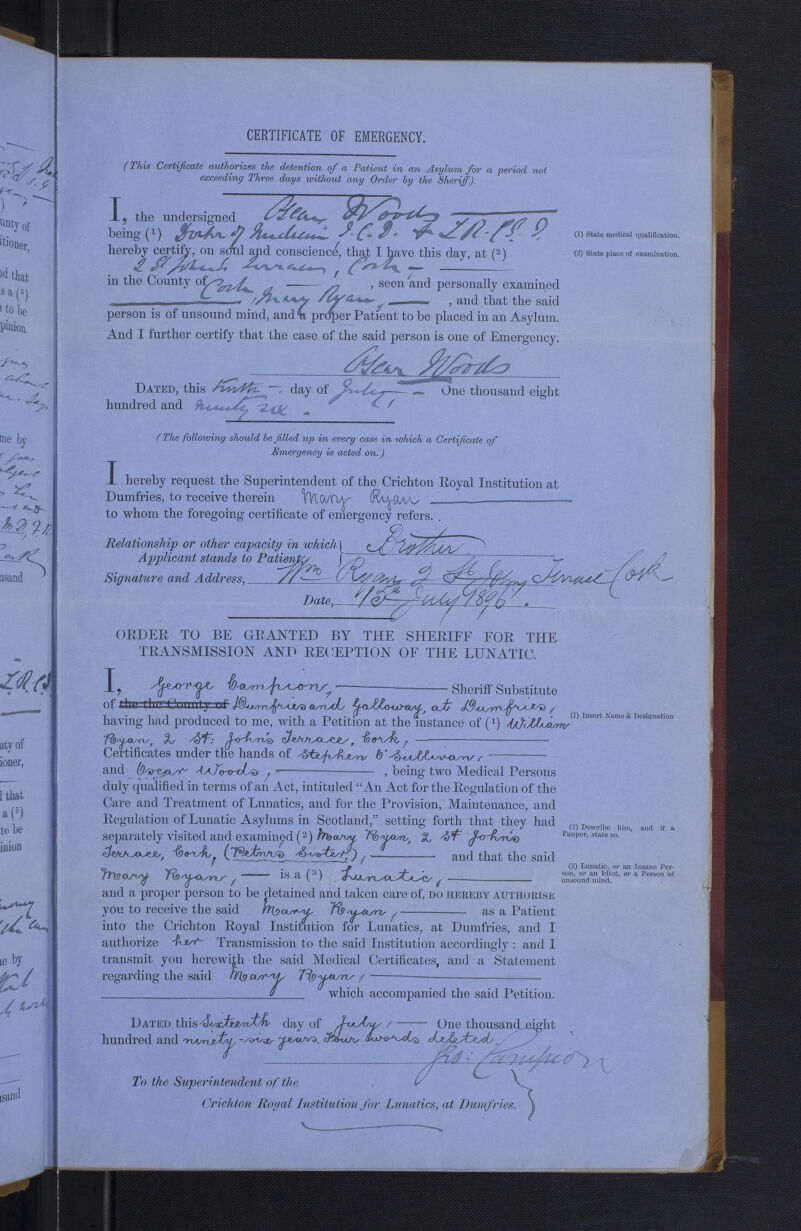 CERTIFICATE OF EMERGENCY.
(This Certificate authorizes the detention of a Patient in an Asylum for a period not
exceeding Three days without any Order by the Sheriff).
I, the undersigned Oscar Woods
being (1) Doctor of Medicine & L.R.C.S.
hereby certify, on soul and conscience, that I have this day, at (2)
2 St Johns Terrace, Cork
in the County of Cork, seen and personally examined
Mary Ryan, and that the said
person is of unsound mind, and a proper Patient to be placed in an Asylum.
And I further certify that the case of the said person is one of Emergency.
Oscar Woods
DATED, this day of July One thousand eight
hundred and ninety six.
(1) State medical qualification.
(2) State place of examination.
(The following should be filled up in every case in which a Certificate of
Emergency is acted on.)
I hereby request the Superintendent of the Crichton Royal Institution at
Dumfries, to receive therein Mary Ryan
to whom the foregoing certificate of emergency refers.
Relationship or other capacity in which
Applicant stands to Patient, Brother
Signature and Address, Wm Ryan 2 St Johns Terrace Cork
Date, 13th July 1896.
ORDER TO BE GRANTED BY THE SHERIFF FOR THE
TRANSMISSION AND RECEPTION OF THE LUNATIC.
I, George Campion, Sheriff Substitute
of the the County of Dumfries and Galloway, at Dumfries,
having had produced to me, with a Petition at the instance of (1) William
Ryan, 2 St: John's Terrace, Cork,
Certificates under the hands of Stephen O'Sullivan,
and Oscar Woods, being two Medical Persons
duly qualified in terms of an Act, intituled "An Act for the Regulation of the
Care and Treatment of Lunatics, and for the Provision, Maintenance, and
Regulation of Lunatic Asylums in Scotland," setting forth that they had
separately visited and examined (2) Mary Ryan, 2 St John's
Terrace, Cork, (Petnr's Sister), and that the said
Mary Ryan, is a (3) Lunatic,
and a proper person to be detained and taken care of, DO HEREBY AUTHORISE
you to receive the said Mary Ryan, as a Patient
into the Crichton Royal Institution for Lunatics, at Dumfries, and I
authorize her Transmission to the said Institution accordingly: and I
transmit you herewith the said Medical Certificates, and a Statement
regarding the said Mary Ryan,
which accompanied the said Petition.
DATED this Sixteenth day of July, One thousand eight
hundred and ninety-six years. Four words deleted.
Geo: Campion
To the Superintendent of the
Crichton Royal Institution for Lunatics, at Dumfries.
(1) Insert Name & Designation
(2) Describe him, and if a
Pauper, state so.
(3) Lunatic, or an Insane Per-
son, or an Idiot, or a Person of
unsound mind.